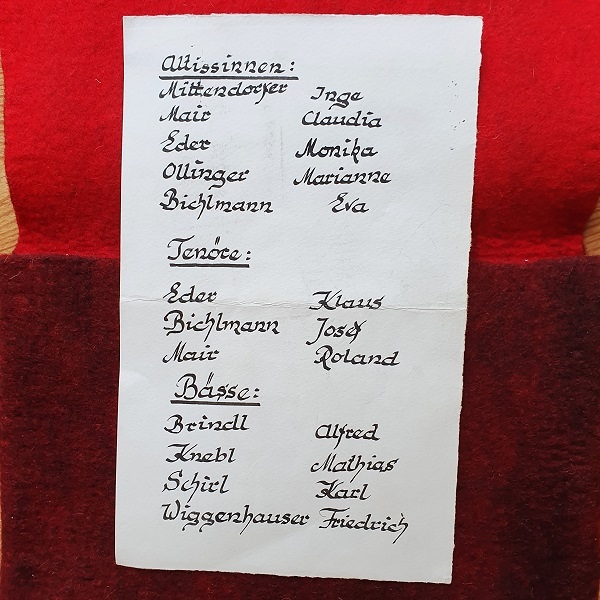 Altissinnen:
Mittendorfer Inge
Mair Claudia
Eder Monika
Ollinger Marianne
Bichlmann Eva
Tenöre:
Eder Klaus
Bichlmann Josef
Mair Roland
Bässe:
Brindl Alfred
Knebl Mathias
Schirl Karl
Wiggenhauser Friedrich